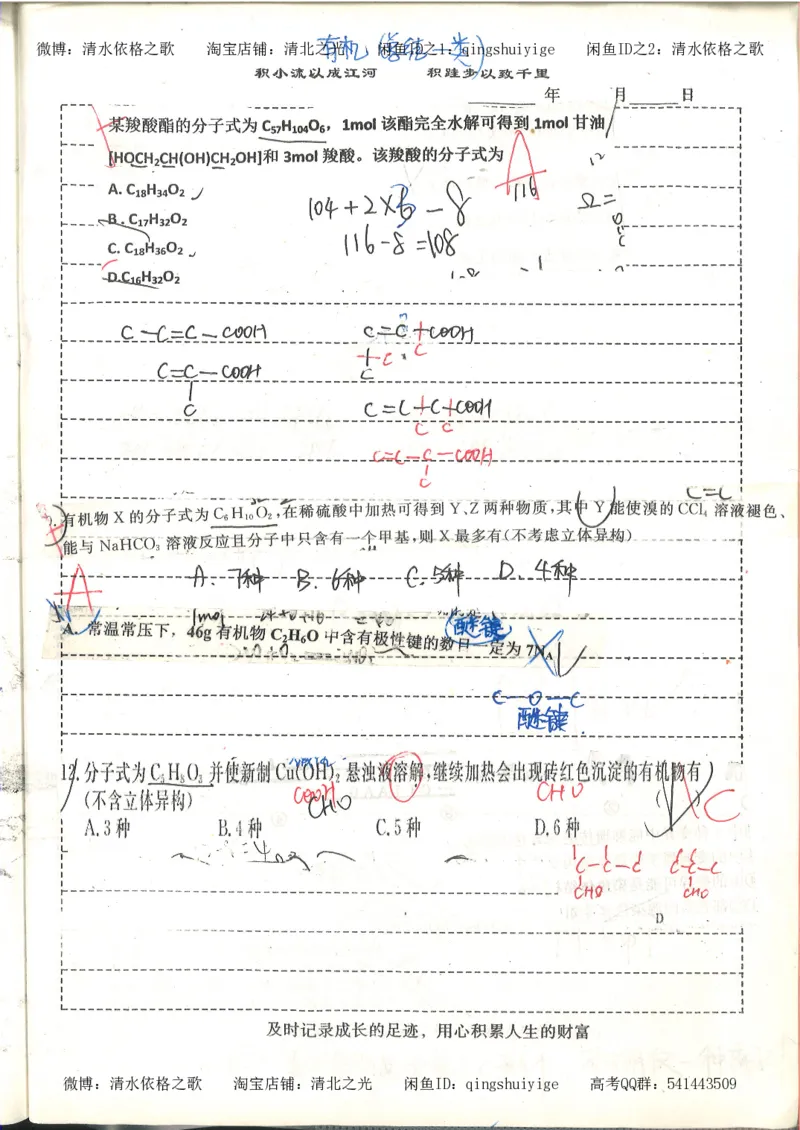 微博：清水依格之歌 淘宝店铺：清北之光 闲鱼ID之1：qingshuiyige 闲鱼ID之2：清水依格之歌
有机（总结一类）
积小流以成江河 积跬步以致千里
年 月 日
某羧酸酯的分子式为 C₅₇H₁₀₄O₆，1mol 该酯完全水解可得到 1mol 甘油
[HOCH₂CH(OH)CH₂OH]和 3mol 羧酸。该羧酸的分子式为
A
A. C₁₈H₃₄O₂
B. C₁₇H₃₂O₂
C. C₁₈H₃₆O₂
D.C₁₆H₃₂O₂
104+2×6-8
116
116-8=108
12
Ω=
C-C=C-COOH
C=C-COOH
C
C=C+COOH
C
C=C+C+COOH
C C
C=C-C-COOH
C
C=C
有机物 X 的分子式为 C₆H₁₀O₂,在稀硫酸中加热可得到 Y、Z 两种物质,其中 Y 能使溴的 CCl₄ 溶液褪色、
能与 NaHCO₃ 溶液反应且分子中只含有一个甲基,则 X 最多有(不考虑立体异构)
A. 7种 B. 6种 C. 5种 D. 4种
A
1mol
A. 常温常压下，46g 有机物 C₂H₆O 中含有极性键的数目一定为 7Nₐ
(醚键)
C-O-C
醚键
12.分子式为 C₄H₈O₃ 并使新制 Cu(OH)₂ 悬浊液溶解,继续加热会出现砖红色沉淀的有机物有
(不含立体异构)
COOH
CHO
CHO
C
A.3 种 B.4 种 C.5 种 D.6 种
C-C-C
CHO
C-C-C
CHO
D
及时记录成长的足迹，用心积累人生的财富
微博：清水依格之歌 淘宝店铺：清北之光 闲鱼ID：qingshuiyige 高考QQ群：541443509